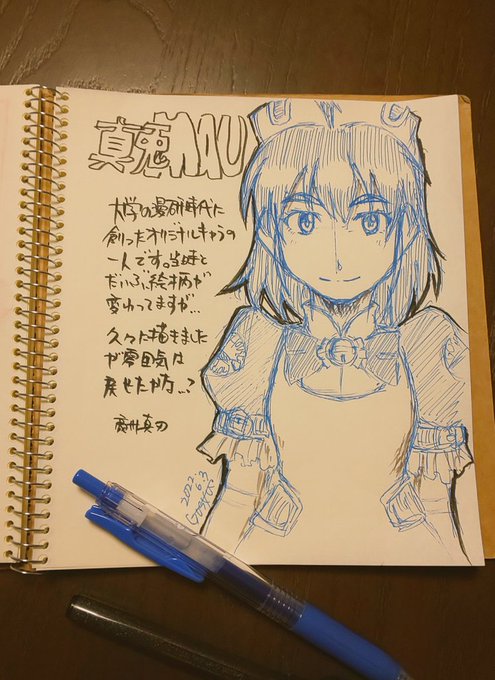 真兎MAU
大学の漫研時代に
創ったオリジナルキャラの
一人です。当時と
だいぶ絵柄が
変わってますが…
久々に描きました
が雰囲気は
戻せたか方…?
2022
6.3